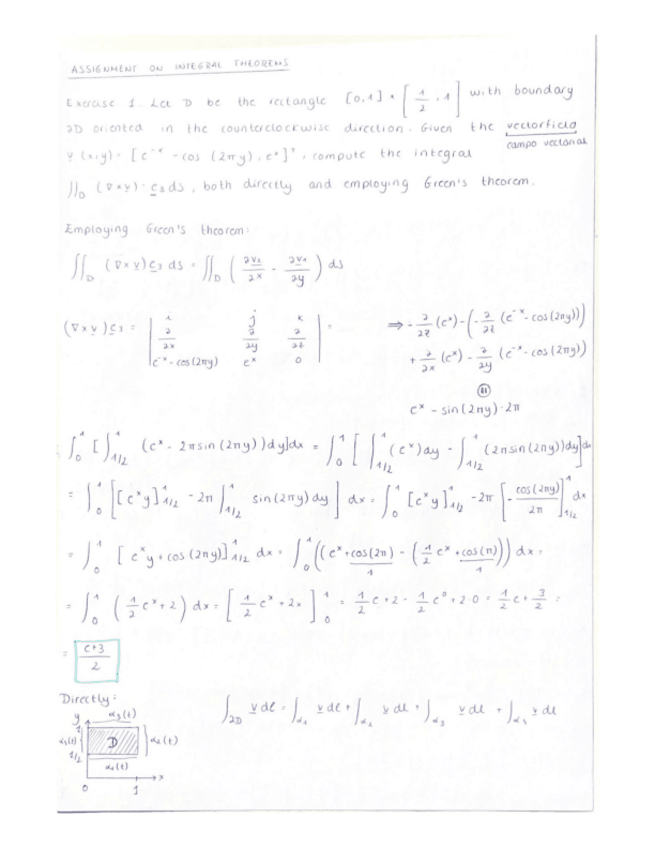 ASSIGNMENT ON INTEGRAL THEOREMS
Exercise 1. Let D be the rectangle [0,1] × [1/2, 1] with boundary
∂D oriented in the counterclockwise direction. Given the vectorfield
campo vectorial
v (x,y) = [e^-x - cos (2πy), e^x]^T, compute the integral
∬_D (∇×v)·e₃ ds, both directly and employing Green's theorem.
Employing Green's theorem:
∬_D (∇×v) e₃ ds = ∬_D (∂v₂/∂x - ∂v₁/∂y) ds
(∇×v) e₃ = | i j k ; ∂/∂x ∂/∂y ∂/∂z ; e^-x - cos(2πy) e^x 0 | = ⇒ - ∂/∂z (e^x) - (- ∂/∂z (e^-x - cos(2πy)))
+ ∂/∂x (e^x) - ∂/∂y (e^-x - cos(2πy))
e^x - sin(2πy)·2π
∫₀¹ [∫_1/2^1 (e^x - 2π sin(2πy)) dy] dx = ∫₀¹ [∫_1/2^1 (e^x) dy - ∫_1/2^1 (2π sin(2πy)) dy] dx
= ∫₀¹ [[e^x y]_1/2^1 - 2π ∫_1/2^1 sin(2πy) dy] dx = ∫₀¹ [e^x y]_1/2^1 - 2π [- cos(2πy)/2π]_1/2^1 dx
= ∫₀¹ [e^x y + cos(2πy)]_1/2^1 dx = ∫₀¹ ((e^x + cos(2π) - (1/2 e^x + cos(π))) dx =
1 1
= ∫₀¹ (1/2 e^x + 2) dx = [1/2 e^x + 2x]₀¹ = 1/2 e + 2 - 1/2 e⁰ + 2·0 = 1/2 e + 3/2 =
= e+3/2
Directly:
∫_∂D v dl = ∫_α₁ v dl + ∫_α₂ v dl + ∫_α₃ v dl + ∫_α₄ v dl
y α₃(t)
1
α₄(t) D α₂(t)
1/2
α₁(t)
x
0 1